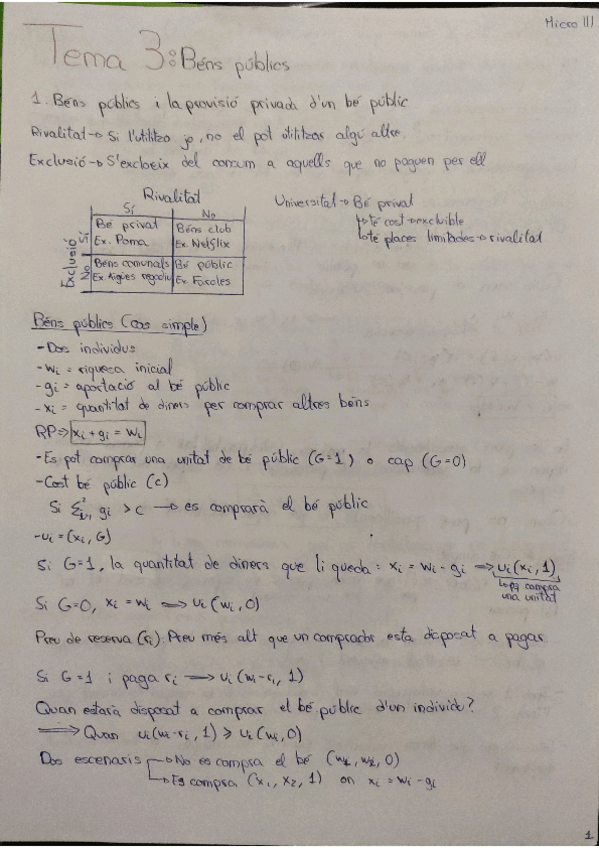 Micro III
Tema 3: Béns públics
1. Béns públics i la provisió privada d'un bé públic
Rivalitat → Si l'utilitzo jo, no el pot utilitzar algú altre.
Exclusió → S'excloeix del consum a aquells que no paguen per ell
Rivalitat
Sí No
Exclusió
Sí
No
Bé privat
Ex. Poma
Béns club
Ex. Netflix
Béns comunals
Ex. Aigües regadiu
Bé públic
Ex. Faroles
Universitat → Bé privat
↳ té cost → excluible
↳ té places limitades → rivalitat
Béns públics (cas simple)
- Dos individus
- wi = riquesa inicial
- gi = aportació al bé públic
- xi = quantitat de diners per comprar altres béns
RP ⇒ xi + gi = wi
- Es pot comprar una unitat de bé públic (G=1) o cap (G=0)
- Cost bé públic (c)
Si Σ² gi > c → es comprarà el bé públic
- ui = (xi, G)
Si G=1, la quantitat de diners que li queda: xi = wi - gi ⇒ ui(xi, 1)
↳ pq compra
una unitat
Si G=0, xi = wi ⇒ ui(wi, 0)
Preu de reserva (ri): Preu més alt que un comprador esta disposat a pagar
Si G=1 i paga ri → ui(wi - ri, 1)
Quan estarà disposat a comprar el bé públic d'un individo?
⇒ Quan ui(wi - ri, 1) ≥ ui(wi, 0)
Dos escenaris → No es compra el bé (w1, w2, 0)
↳ Es compra (x1, x2, 1) on xi = wi - gi
1